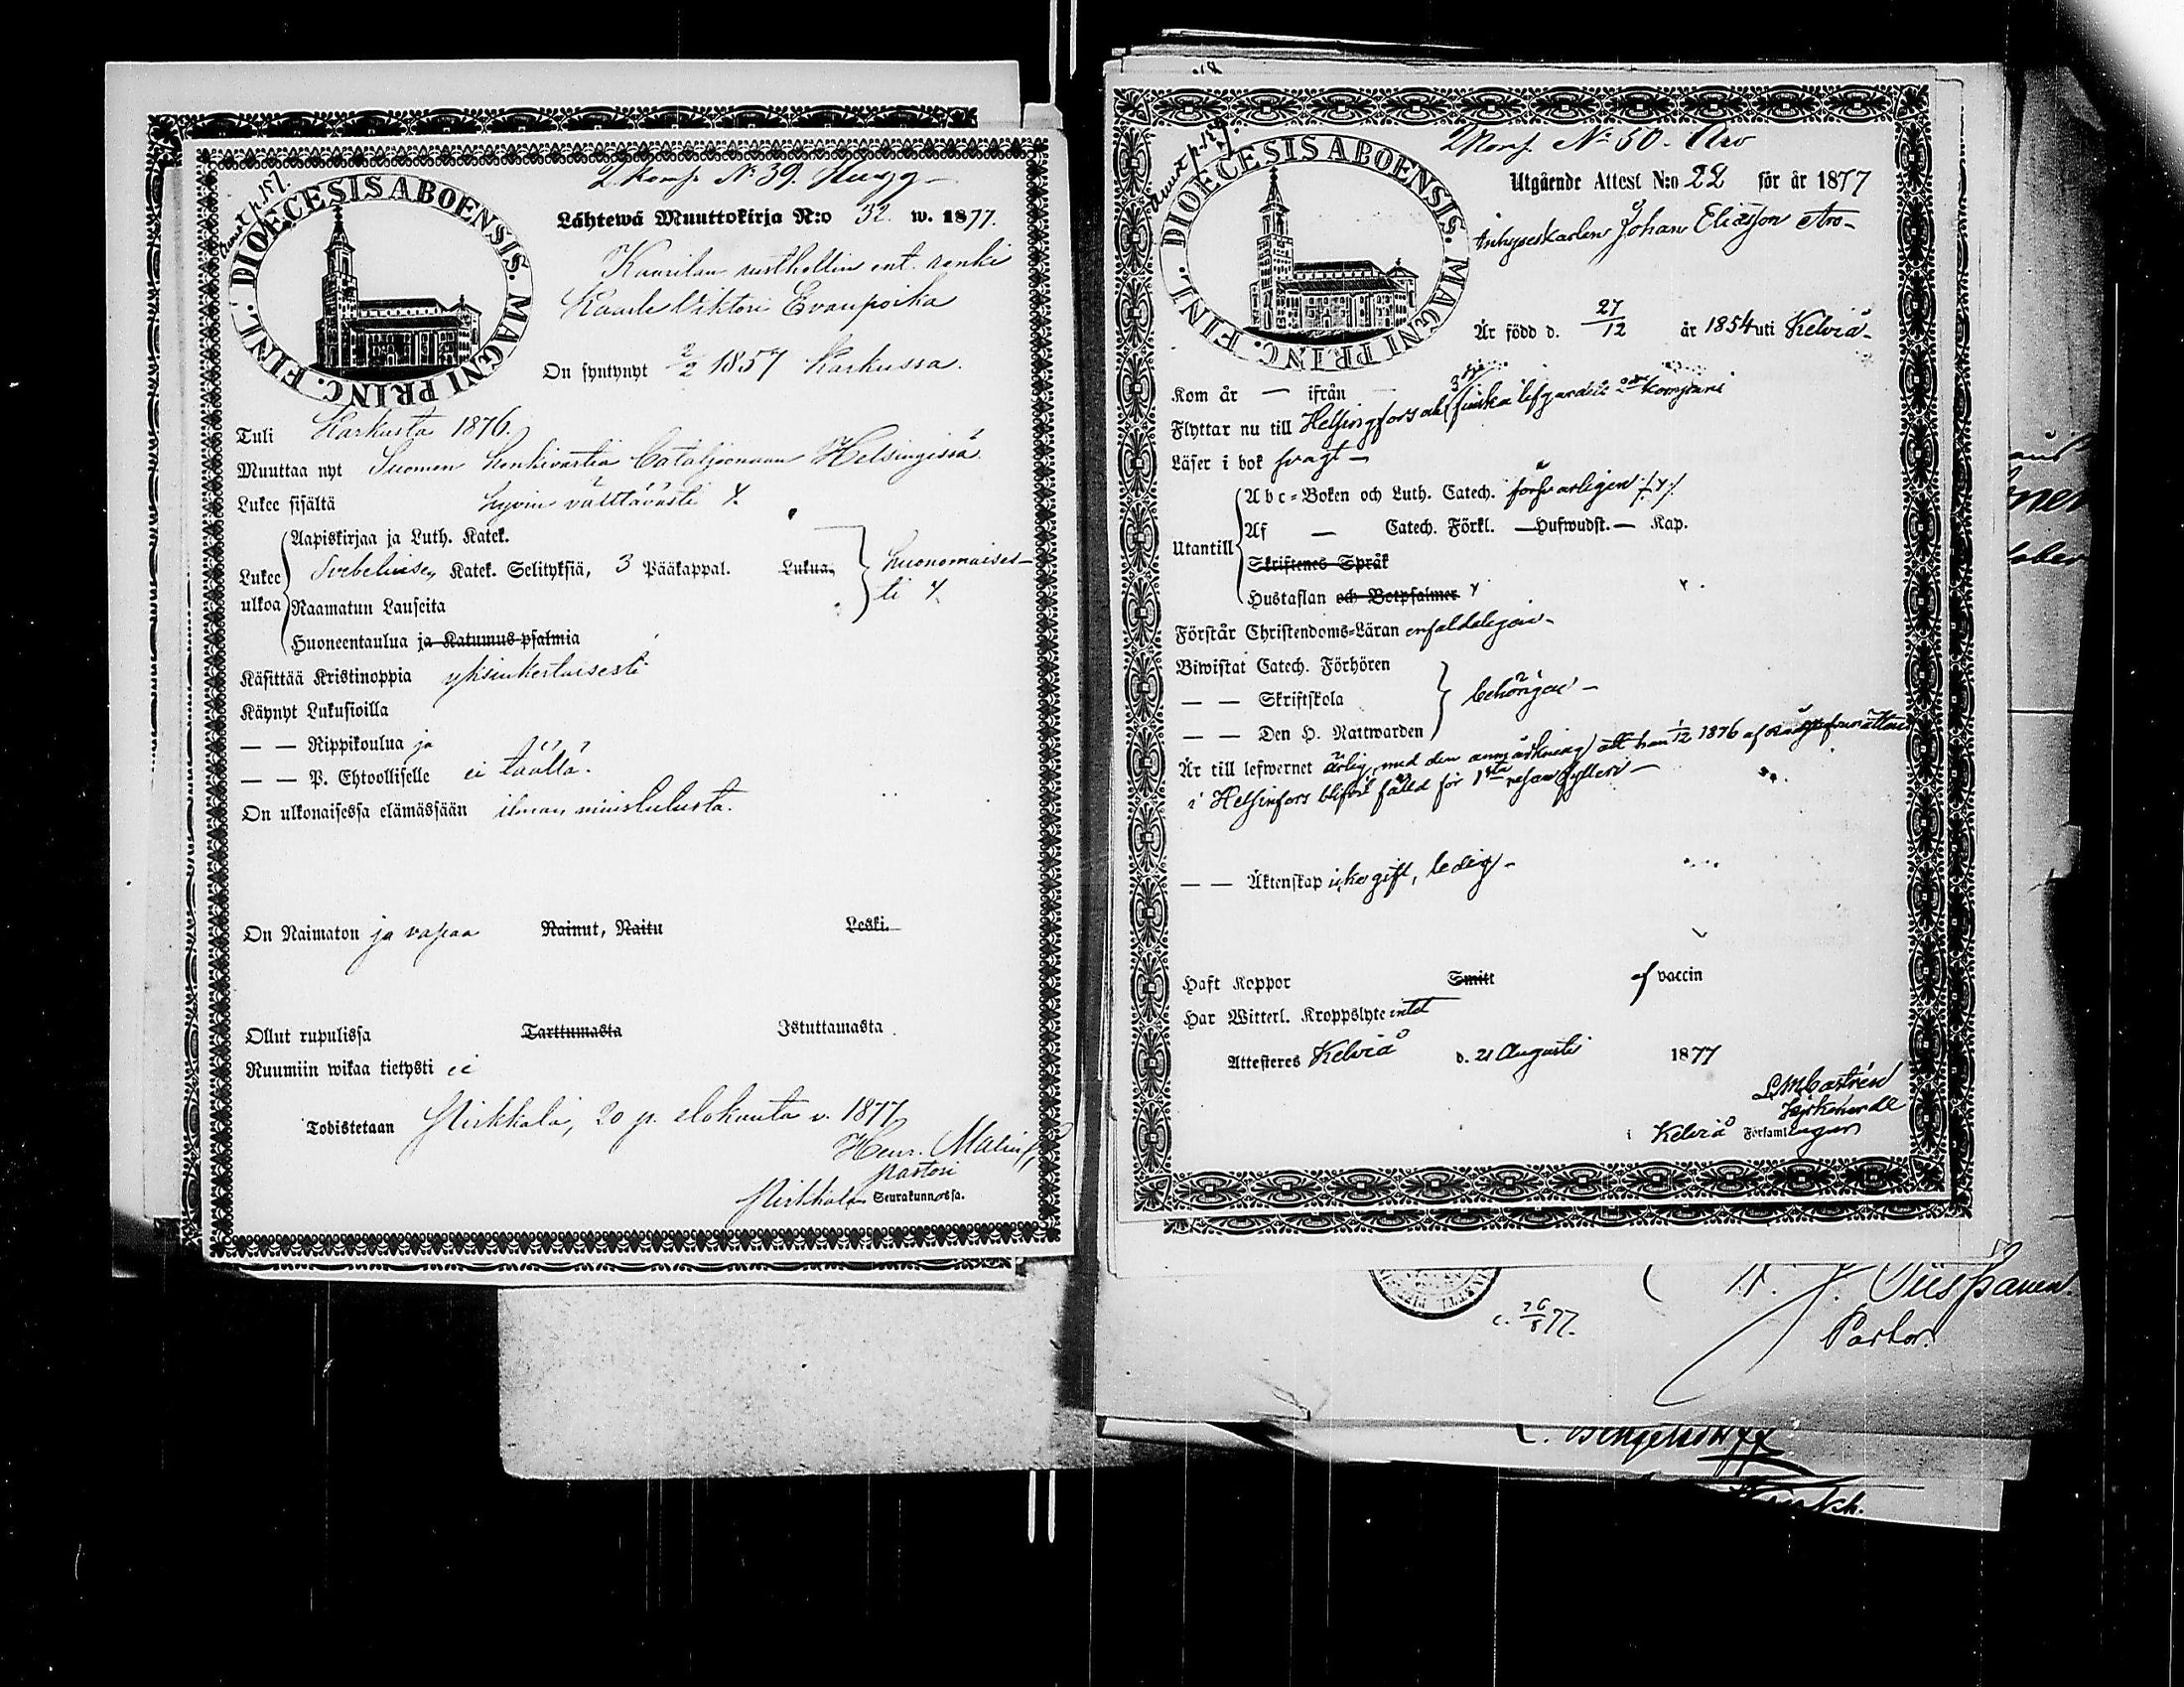 DIOECESIS ABOENSIS. MAGNI PRINC. FINL.
2 komp. No 39. Hugg
Lähtewä Muuttokirja N:o 32. w. 1877.
Kaurilan rusthollin ent. renki
Kaarle Viktori Evanpoika
On syntynyt 2/2 1857 Karkussa.
Tuli Karkusta 1876.
Muuttaa nyt Suomen henkivartia bataljoonaan Helsingissä
Lukee sisältä hyvin välttävästi
Aapiskirjaa ja Luth. Katek.
Lukee ulkoa
Svebeliusen Katek. Selityksiä, 3 Pääkappal. Lukua.
huonomaisesti
Raamatun Lauseita
Huoneentaulua ja Katumus-psalmia
Käsittää Kristinoppia yksinkertaisesti
Käynyt Lukusioilla
— — Rippikoulua ja
— — P. Ehtoolliselle ei täällä.
On ulkonaisessa elämässään ilman muistutusta.
On Naimaton ja vapaa Nainut, Naitu Leski.
Ollut rupulissa Tarttumasta Istuttamasta
Ruumiin wikaa tietysti ei
Todistetaan Pirkkala, 20 p. elokuuta v. 1877
Henr. Malin
pastori
Pirkkala Seurakunnassa.
DIOECESIS ABOENSIS. MAGNI PRINC. FINL.
2 Komp. No 50. Aro
Utgående Attest N:o 22 för år 1877
Inhyseskarlen Johan Eliasson Aro
Är född d. 27/12 år 1854 uti Kelviå
Kom år — ifrån —
Flyttar nu till Helsingfors finska lifgardets 2 kompani
Läser i bok svagt
Utantill
Abc-Boken och Luth. Catech. försvarligen
Af — Catech. Förkl. — Hufwudst. — Kap.
Skriftenes Språk
Hustaflan och Botpsalmer
Förstår Christendoms-Läran enfaldeligen
Biwistat Catech. Förhören
— — Skriftskola
behörigen
— — Den H. Nattwarden
Är till lefwernet ärlig, med den anmärkning att han 1/12 1876 af
i Helsinfors blifvit fälld för 1sta resan fylleri
— — Äktenskap icke gift, ledig
Haft Koppor Smitt af vaccin
Har Witterl. Kroppslyte intet
Attesteres Kelviå d. 21 Augusti 1877
L M Castrén
Kyrkoherde
i Kelviå Församlingen
c. 26/8 77.
Pastor.